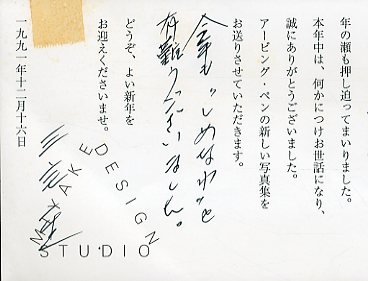 年の瀬も押し迫ってまいりました。
本年中は、何かにつけお世話になり、
誠にありがとうございました。
アービング・ペンの新しい写真集を
お送りさせていただきます。
今年も
有難うございました。
どうぞ、よい新年を
お迎えくださいませ。
一九九一年十二月十六日
MIYAKE DESIGN STUDIO